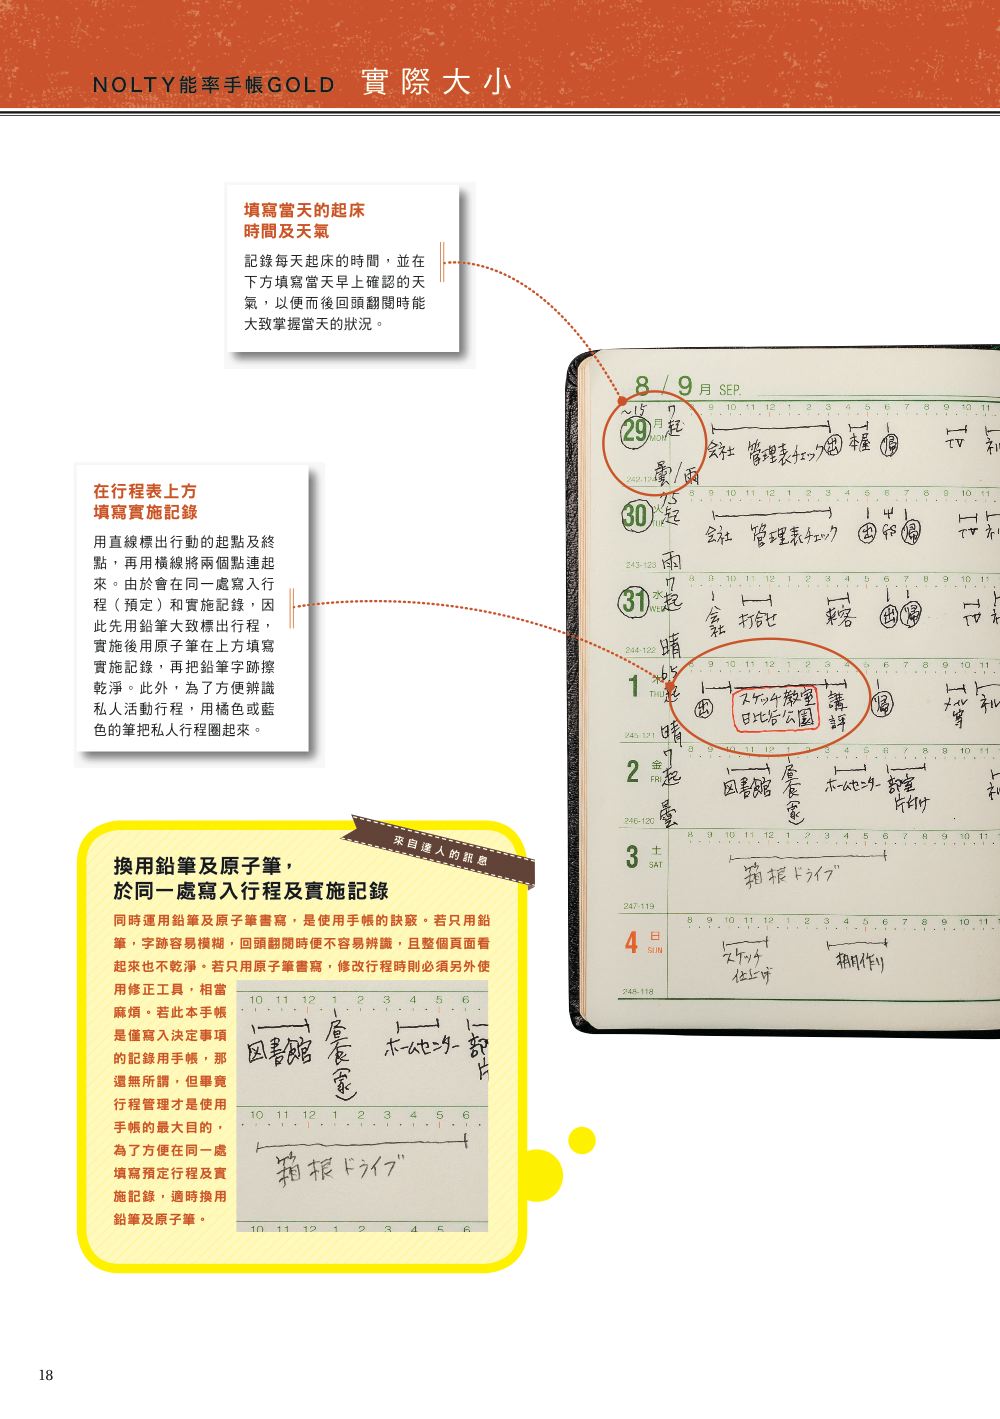 NOLTY能率手帳GOLD 實際大小
填寫當天的起床
時間及天氣
記錄每天起床的時間，並在
下方填寫當天早上確認的天
氣，以便而後回頭翻閱時能
大致掌握當天的狀況。
在行程表上方
填寫實施記錄
用直線標出行動的起點及終
點，再用橫線將兩個點連起
來。由於會在同一處寫入行
程（預定）和實施記錄，因
此先用鉛筆大致標出行程，
實施後用原子筆在上方填寫
實施記錄，再把鉛筆字跡擦
乾淨。此外，為了方便辨識
私人活動行程，用橘色或藍
色的筆把私人行程圈起來。
8/9月 SEP.
8 9 10 11 12 1 2 3 4 5 6 7 8 9 10 11
~15 7起
29 月 MON
会社 管理表チェック 出 本屋 帰 TV
曇/雨
8 9 10 11 12 1 2 3 4 5 6 7 8 9 10 11
30 火 TUE
75起
会社 管理表チェック 出 帰 TV
243-123 雨
8 9 10 11 12 1 2 3 4 5 6 7 8 9 10 11
31 水 WED
7起
会社 打合せ 来客 出 帰 TV
244-122 晴
8 9 10 11 12 1 2 3 4 5 6 7 8 9 10 11
1 木 THU
65起
出 スケッチ教室 講評 帰 メイル等
日比谷公園
245-121 晴
8 9 10 11 12 1 2 3 4 5 6 7 8 9 10 11
2 金 FRI
7起
図書館 昼食（家） ホームセンター 部室片付け
246-120 曇
8 9 10 11 12 1 2 3 4 5 6 7 8 9 10 11
3 土 SAT
箱根ドライブ
247-119
8 9 10 11 12 1 2 3 4 5 6 7 8 9 10 11
4 日 SUN
スケッチ 棚作り
仕上げ
248-118
來自達人的訊息
換用鉛筆及原子筆，
於同一處寫入行程及實施記錄
同時運用鉛筆及原子筆書寫，是使用手帳的訣竅。若只用鉛
筆，字跡容易模糊，回頭翻閱時便不容易辨識，且整個頁面看
起來也不乾淨。若只用原子筆書寫，修改行程時則必須另外使
用修正工具，相當
麻煩。若此本手帳
是僅寫入決定事項
的記錄用手帳，那
還無所謂，但畢竟
行程管理才是使用
手帳的最大目的，
為了方便在同一處
填寫預定行程及實
施記錄，適時換用
鉛筆及原子筆。
10 11 12 1 2 3 4 5 6
図書館 昼食（家） ホームセンター 部 片
10 11 12 1 2 3 4 5 6
箱根ドライブ
10 11 12 1 2 3 4 5 6
18